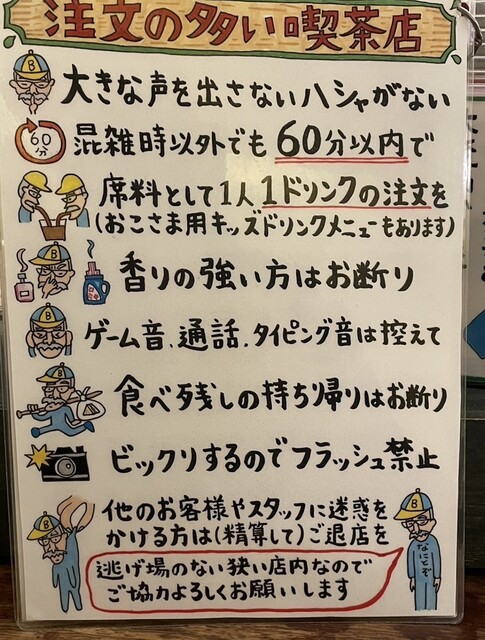 注文の多い喫茶店
大きな声を出さないハシャがない
60分
混雑時以外でも60分以内で
席料として1人1ドリンクの注文を
(おこさま用キッズドリンクメニューもあります)
香りの強い方はお断り
ゲーム音、通話、タイピング音は控えて
食べ残しの持ち帰りはお断り
ビックリするのでフラッシュ禁止
他のお客様やスタッフに迷惑を
かける方は(精算して)ご退店を
逃げ場のない狭い店内なので
ご協力よろしくお願いします
なにとぞ
B
B
B
B
B
B